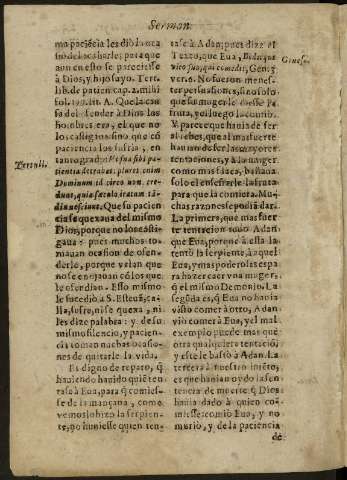 Sermon.
ma paciẽcia les dio la oca
sion de sacarle; para que
aun en esto se pareciesse
à Dios, y hijo suyo. Tert.
lib. de patien. cap. 2. mihi
fol. lit. A. Que la cau
sa del ofender à Dios los
hombres era, el que no
los castigaua sino que cõ
paciencia los sufria, en
tanto grado:
Dominum id circo non cre-
dant, quia sæculo iratum tã
diu nesciunt. Que su pacien
cia se quexaua del mismo
Dios, porque no los casti-
gaua: pues muchos to-
mauan ocasion de ofen-
derlo, porque veìan que
no se enojaua cõ los que
le ofendian. Esto mismo
le sucediò a S. Esteuã, ca-
lla, sufre, ni se quexa, ni
les dize palabra: y de su
mismo silencio, y pacien-
cia tomò muchas ocasio-
nes de quitarle la vida.
Es digno de reparo, q̃
hauiendo hauido quiẽ ten
tasse à Eua, para q̃ comies-
se de la mançana, como
vemos lo hizo la serpien-
te, no huuiesse quien ten-
Tertuli.
tasse à Adan; pues dize el
Texto, que Eua, Deditque
viro suo, qui comedit, Gen. 3
ver. 6. No fueron menes-
ter persuasiones, sino solo
que su muger le diesse la
fruta, y el luego la comio.
Y parece que hauia de ser
al rebes, que al mas fuerte
hauian de ser las mayores
tentaciones, y à la muger
como mas flaca, bastaua
solo el enseñarle la fruta
para que la comiera. Mu-
chas razones se podiã dar.
La primera, que mas fuer
te tentacion tuuo Adan
que Eua, porque à ella la
tentò la serpiente, à aquel
Eua, y mas poderosa es pa
ra hazer caer vna muger,
q̃ el mismo Demonio. La
segũda es, q̃ Eua no hauia
visto comer à otro, Adan
viò comer à Eua, y el mal
exemplo puede mas que
otra qualquiera tentaciõ,
y este le bastò à Adan. La
tercera à nuestro intẽto,
es que hauian oydo la sen
tencia de muerte q̃ Dios
hauia dado à quien co-
miesse: comiò Eua, y no
murio, y de la paciencia
de
Genes.